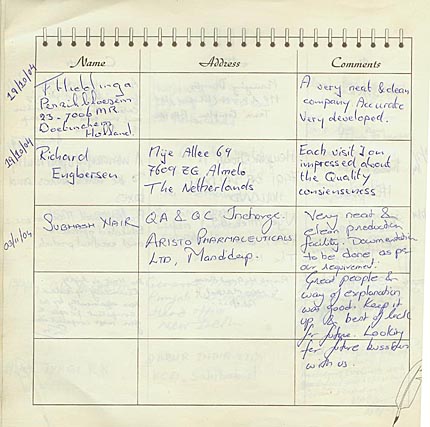 Name Address Comments
29/10/04
F. Hiddinga
23-7006 MR
Doetinchem
Holland.
A very neat & clean
company Accurate
Very developed.
29/10/04
Richard
Engbersen
Mije Allee 69
7609 EG Almelo
The Netherlands
Each visit I am
impressed about
the Quality
consienseness
03/11/04
SUBHASH NAIR
QA & QC Incharge.
ARISTO PHARMACEUTICALS
LTD, Mandideep.
Very neat &
clean production
facility. Documentation
to be done as per
our requirement.
Great people &
way of explanation
was good. Keep it
up & best of luck
for future. Looking
for future bussiness
with us.